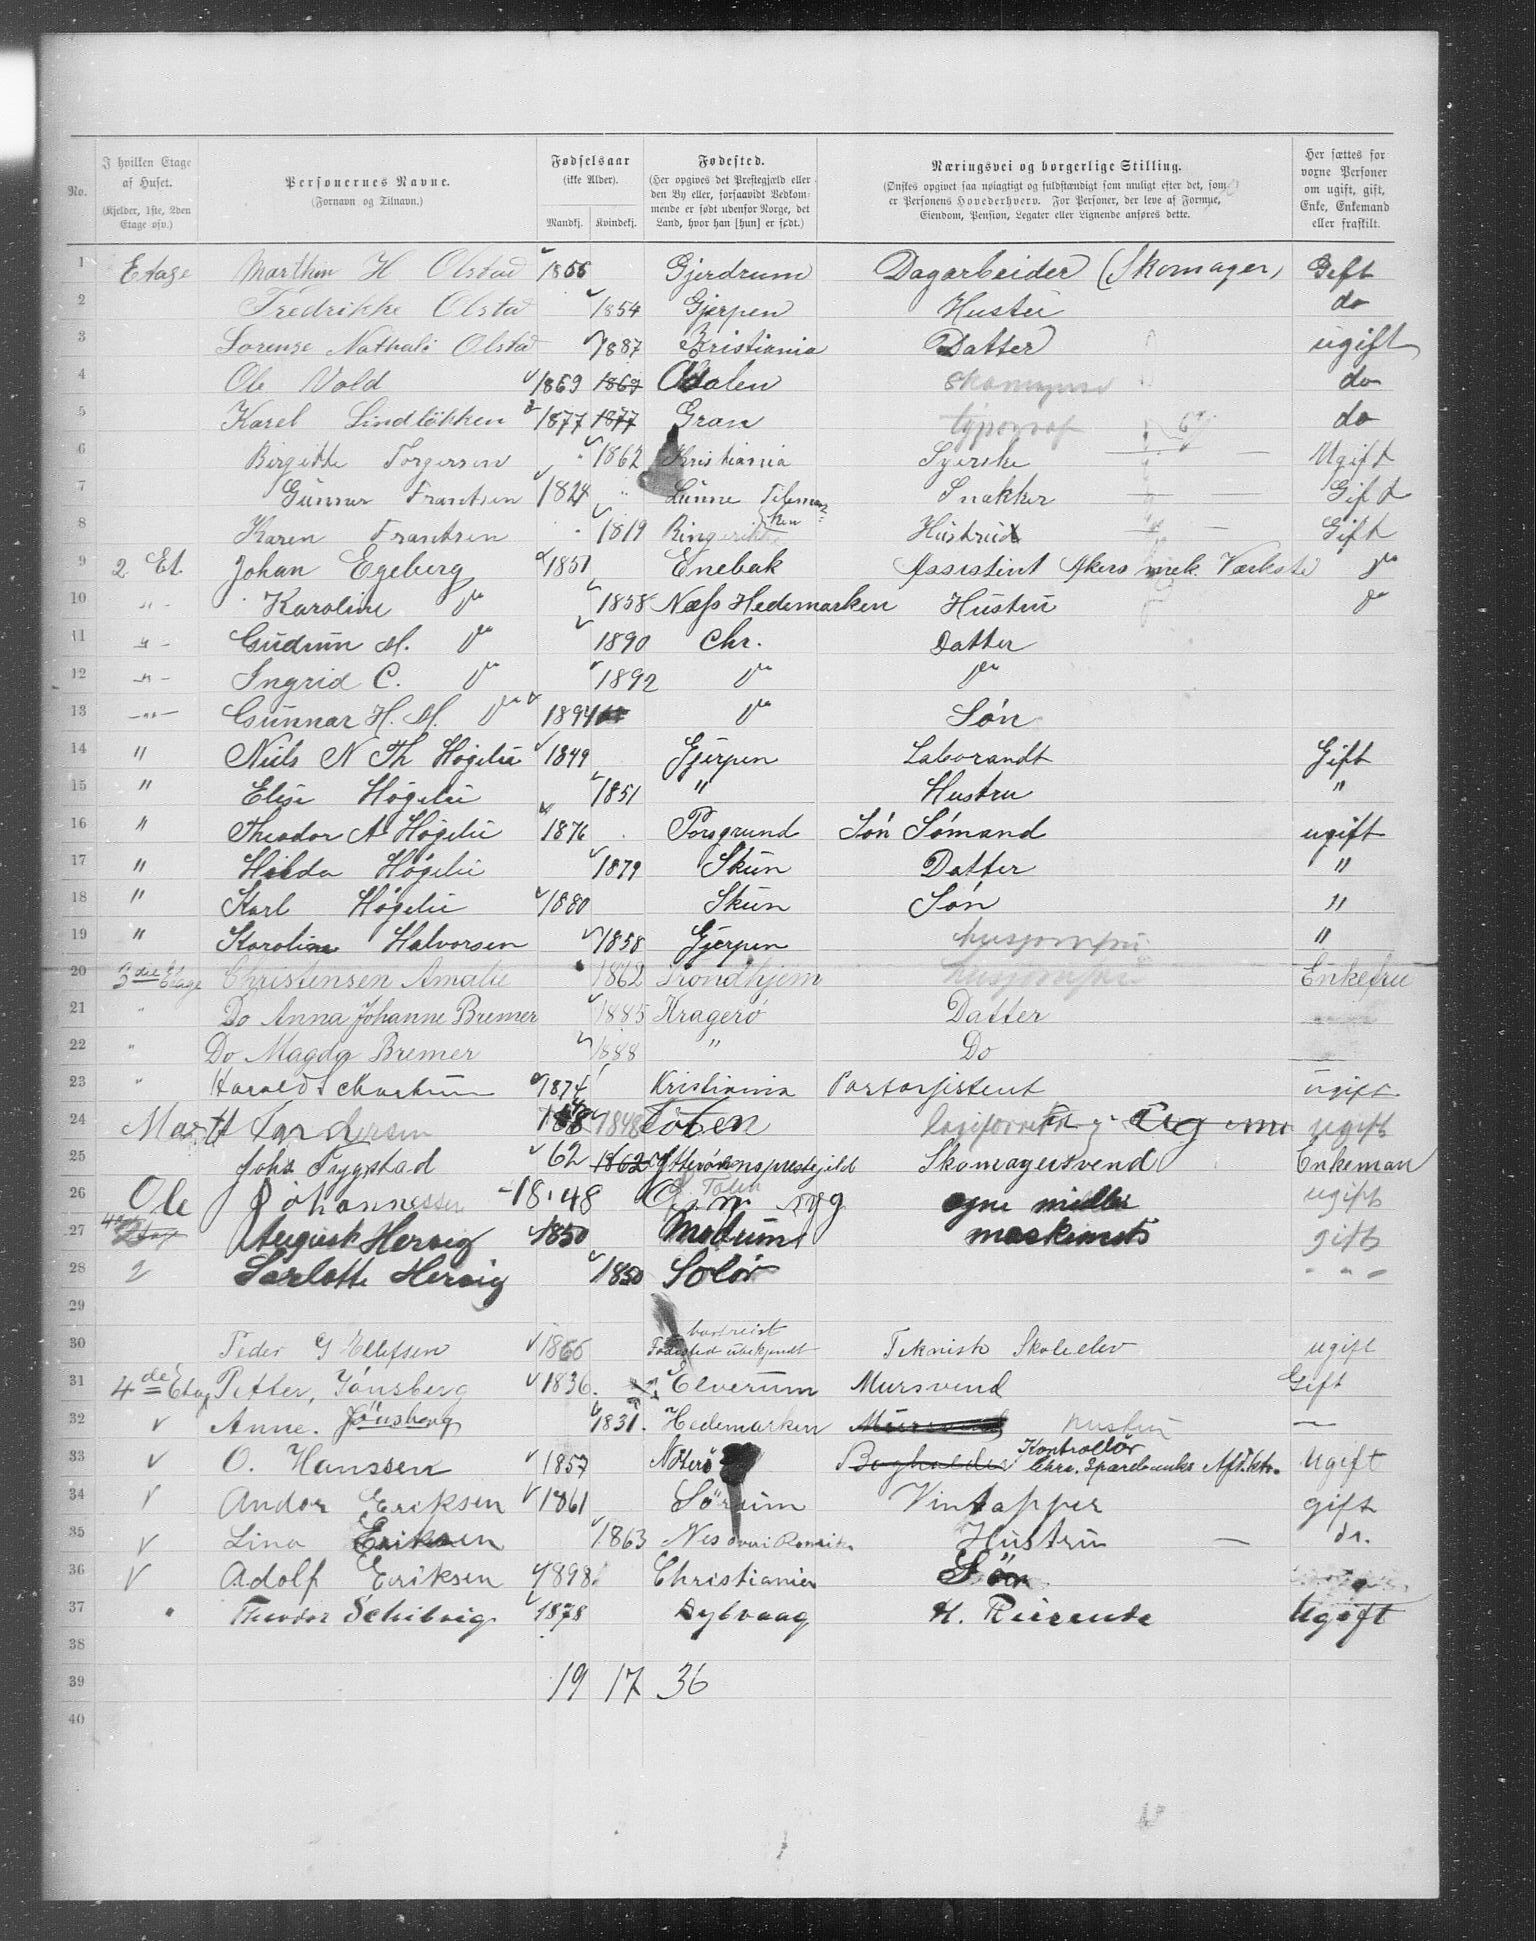 No.
I hvilken Etage af Huset. (Kjelder, 1ste, 2den Etage osv.)
Personernes Navne. (Fornavn og Tilnavn.)
Fødselsaar (ikke Alder). Mandkj. Kvindekj.
Fødested. (Her opgives det Prestegjæld eller den By eller, forsaavidt Vedkommende er født udenfor Norge, det Land, hvor han [hun] er født.)
Næringsvei og borgerlige Stilling. (Ønskes opgivet saa nøiagtigt og fuldstændigt som muligt efter det, som er Personens Hovederhverv. For Personer, der leve af Formue, Eiendom, Pension, Legater eller Lignende anføres dette.
Her sættes for voxne Personer om ugift, gift, Enke, Enkemand eller fraskilt.
1 Etage Marthin H Olstad Gjerdrum Dagarbeider (Skomager) Gift
2 Fredrikke Olstad 1854 Gjerpen Hustru do
3 Lorense Nathali Olstad 1887 Kristiania Datter ugift
4 Ole Vold 1869 1869 Odalen skomager do
5 Karel Lindløkken 1877 1877 Gran typograf do
6 Birgitte Torgersen 1862 Kristiania Syerske Ugift
7 Gunnar Frantsen 1824 Lunne Tilemarken Snekker Gift
8 Karen Frantsen 1819 Ringerike Hustru Gift
9 2 Et. Johan Egeberg 1851 Enebak Assistent Akers mek. Værksted do
10 " Karoline do 1858 Næss Hedemarken Hustru do
11 " Gudrun M. do 1890 Chr. Datter
12 " Ingrid C. do 1892 do do
13 " Gunnar H. M. do 1894 do Søn
14 " Niels N Th Høgelie 1849 Gjerpen Laborandt Gift
15 " Elise Høgelie 1851 " Hustru "
16 " Theodor A Høgelie 1876 Porsgrund Søn Sømand ugift
17 " Hilda Høgelie 1879 Skien Datter "
18 " Karl Høgelie 1880 Skien Søn "
19 " Karoline Halvorsen 1858 Gjerpen husjomfru "
20 3die Etage Christensen Amalie 1862 Trondhjem Enkefru
21 " Do Anna Johanne Bremer 1885 Kragerø Datter
22 " Do Magda Bremer 1888 " Do
23 " Harald 1874 Kristiania Postassistent ugift
24 1848 Toten ugift
25 Johs Trygstad 62 1862 Skomagersvend Enkeman
26 Ole Johannessen 18 48 Toten egne midler ugift
27 August Hervig 1850 Modum maskinist gift
28 2 Sarlotte Hervig 1850 Solør "
29
30 Peder G Ellefsen 1866 bortreist Fødested ubekjendt Teknisk Skoleelev ugift
31 4de Etage Petter, Jønsberg 1836. Elverum Mursvend Gift
32 v Anne. Jønsberg 1831. Hedemarken Mursvend hustru —
33 v O. Hanssen 1857 Nøterø Bogholder Kontrollør Chra. Sparebanks Ugift
34 v Andor Eriksen 1861 Sørum Vintapper gift
35 v Lina Eriksen 1863 Nes Hustru do.
36 v Adolf Eriksen 1898 Christiania Søn
37 " Theodor Schilvig 1878 Dybvaag H. Reisende Ugift
38
39 19 17 36
40